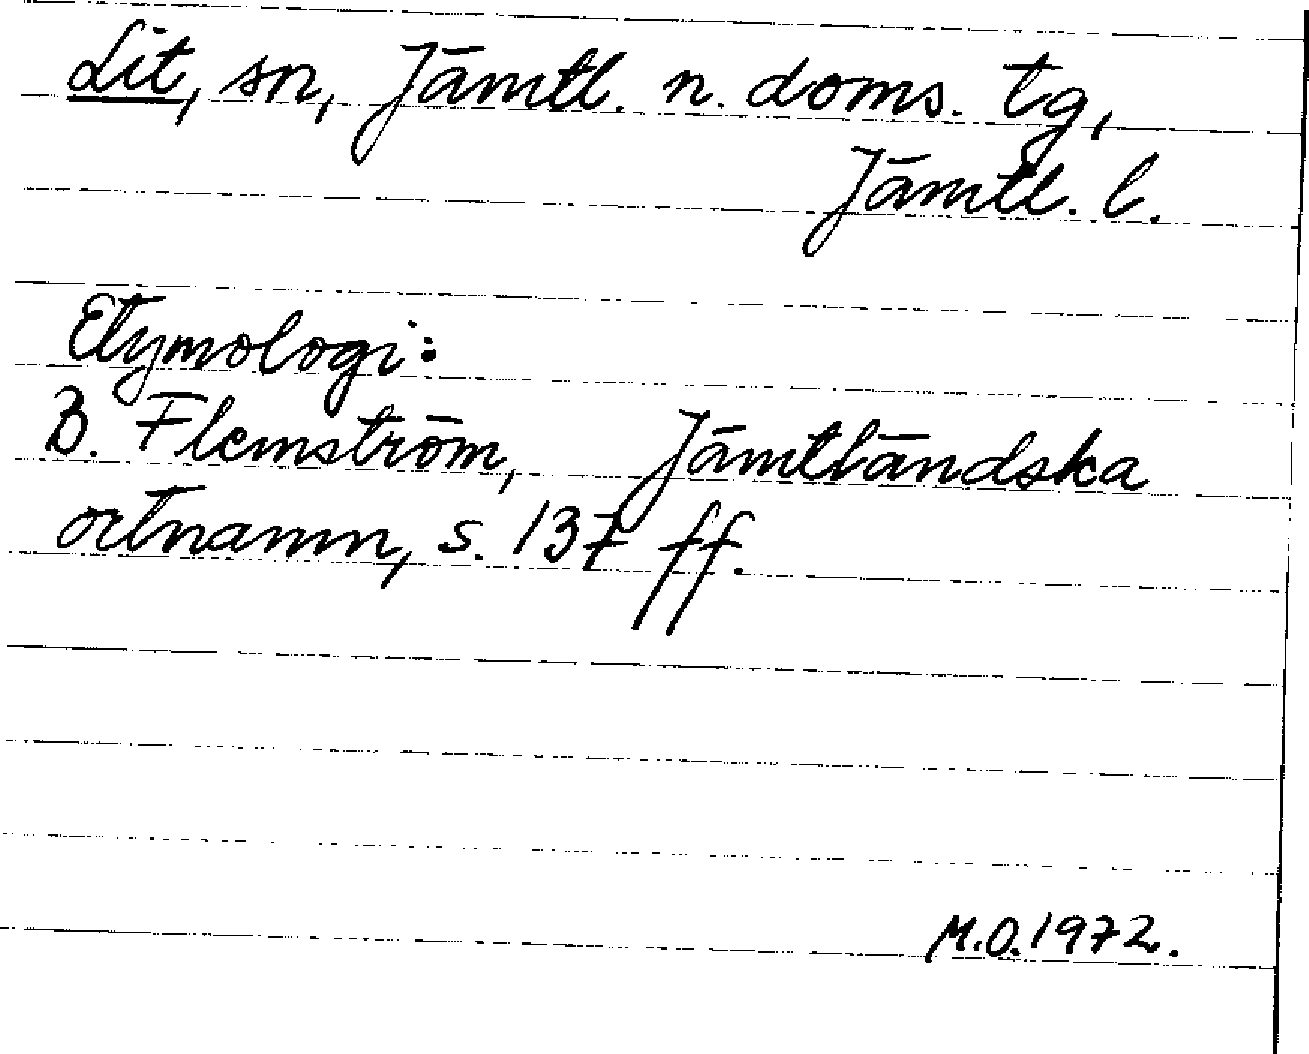 Lit, sn, Jämtl. n. doms. tg,
Jämtl. l.
Etymologi:
B. Flemström, Jämtländska
ortnamn, s. 137 ff.
M.O. 1972.